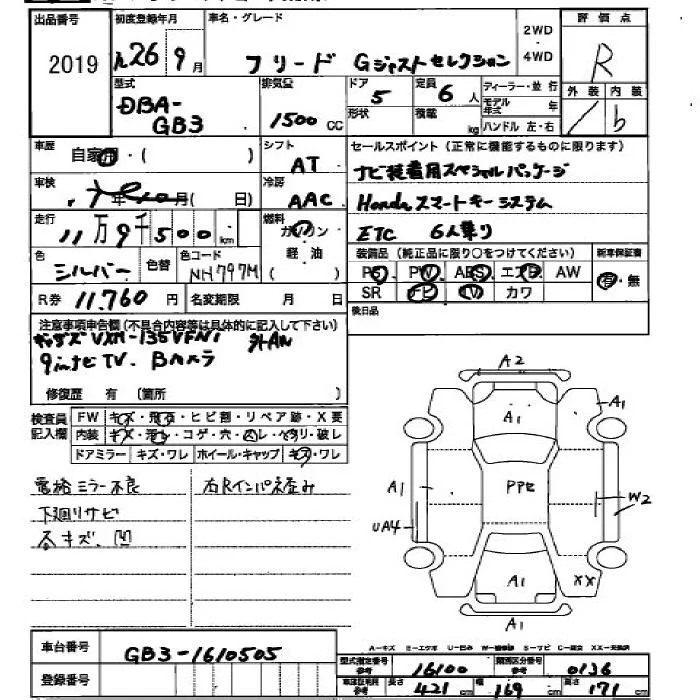 出品番号 初度登録年月 車名・グレード 2WD 評価点
2019 H26 9月 フリード Gジャストセレクション ・ 4WD R
型式 排気量 ドア 定員 ディーラー・並行 外装 内装
DBA- GB3 1500 CC 5 6人 モデル年式 年 / b
形状 積載 kg ハンドル 左・右
車歴 自家用・( ) シフト AT セールスポイント (正常に機能するものに限ります)
車検 年 月( 日) 冷房 AAC ナビ装着用スペシャルパッケージ
Honda スマートキーシステム
走行 11万9千500 km 燃料 ガソリン・軽油 ETC 6人乗り
色 シルバー 色替 色コード NH797M 装備品 (純正品に限り○をつけてください) 新車保証書
PS PW ABS エアB AW 有・無
R券 11,760円 名変期限 月 日 SR ナビ TV カワ
後日品
注意事項申告欄 (不具合内容等は具体的に記入して下さい)
ギャザズ VXM-135VFNi 外AN
9inナビTV. Bカメラ
修復歴 有 (箇所 )
検査員 記入欄 FW キズ・飛石・ヒビ割・リペア跡・X要
内装 キズ・汚れ・コゲ・穴・スレ・ヘタリ・破レ
ドアミラー キズ・ワレ ホイール・キャップ キズ・ワレ
電格ミラー不良 右Rインパネ歪み
下廻りサビ
各キズ、凹
A2
A1
A1
A1
PPセ
W2
UA4
A1
XX
A1
A-キズ E-エクボ U-凹み W-補修跡 S-サビ C-腐食 XX-交換済
車台番号 GB3-1610505
登録番号
型式指定番号 参考 16100 類別区分番号 参考 0136
車体証明用 参考 長さ 421cm 幅 169cm 高さ 171cm